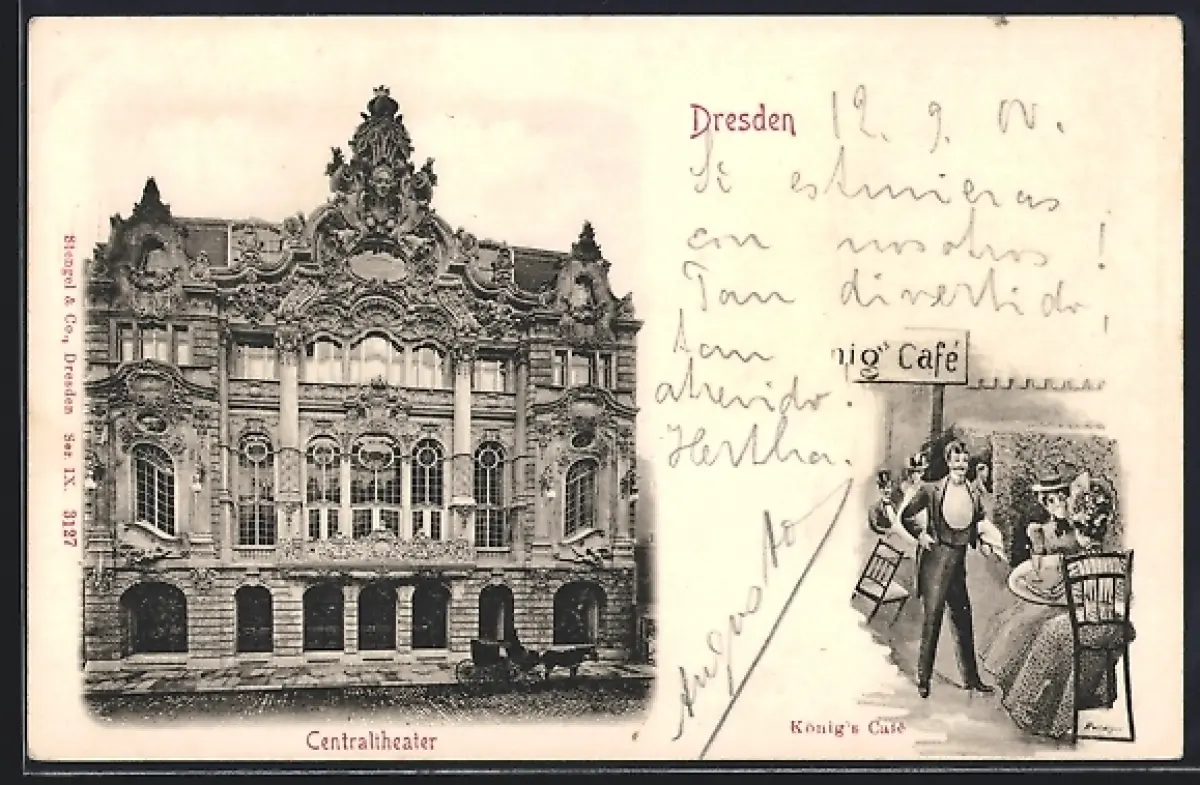 Dresden
12. 9. 00.
Si estuvieras
con nosotros!
Tan divertido,
tan
atrevido.
Hertha.
Augusto
nig's Café
König's Café
Centraltheater
Stengel & Co., Dresden Ser. IX. 3127